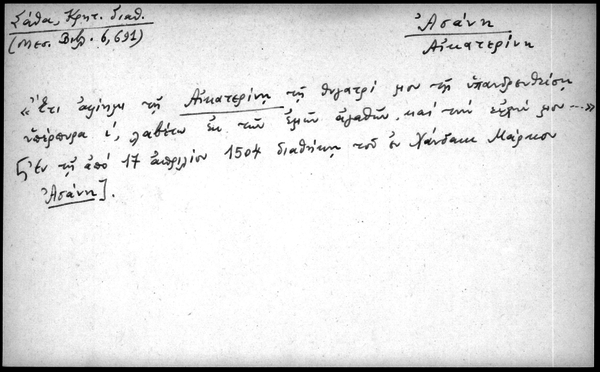 Σάθα, Κρητ. διαθ.
(Μεσ. Βιβ. 6, 691)
Ἀσάνη
Αἰκατερίνη
«Ἔτι ἀφίημι τῇ Αἰκατερίνῃ τῇ θυγατρί μου τῇ ὑπανδρευθείσῃ
ὑπέρπυρα ί, λαβέτω ἐκ τῶν ἐμῶν ἀγαθῶν, καὶ τὴν εὐχήν μου...»
[Ἐν τῇ ἀπό 17 ἀπριλίου 1504 διαθήκῃ τοῦ ἐν Χάνδακι Μάρκου
Ἀσάνη].